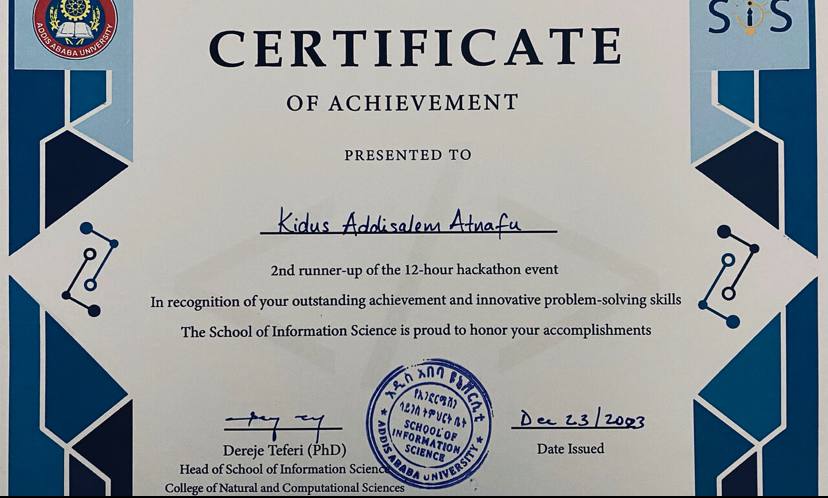 ADDIS ABABA UNIVERSITY
SiS
CERTIFICATE
OF ACHIEVEMENT
PRESENTED TO
Kidus Addisalem Atnafu
2nd runner-up of the 12-hour hackathon event
In recognition of your outstanding achievement and innovative problem-solving skills
The School of Information Science is proud to honor your accomplishments
Dec 23/2003
Dereje Teferi (PhD)
Date Issued
Head of School of Information Science
College of Natural and Computational Sciences
አዲስ አበባ ዩኒቨርሲቲ
የኢንፎርሜሽን
ሳይንስ ትምህርት ቤት
SCHOOL OF
INFORMATION
SCIENCE
ADDIS ABABA UNIVERSITY